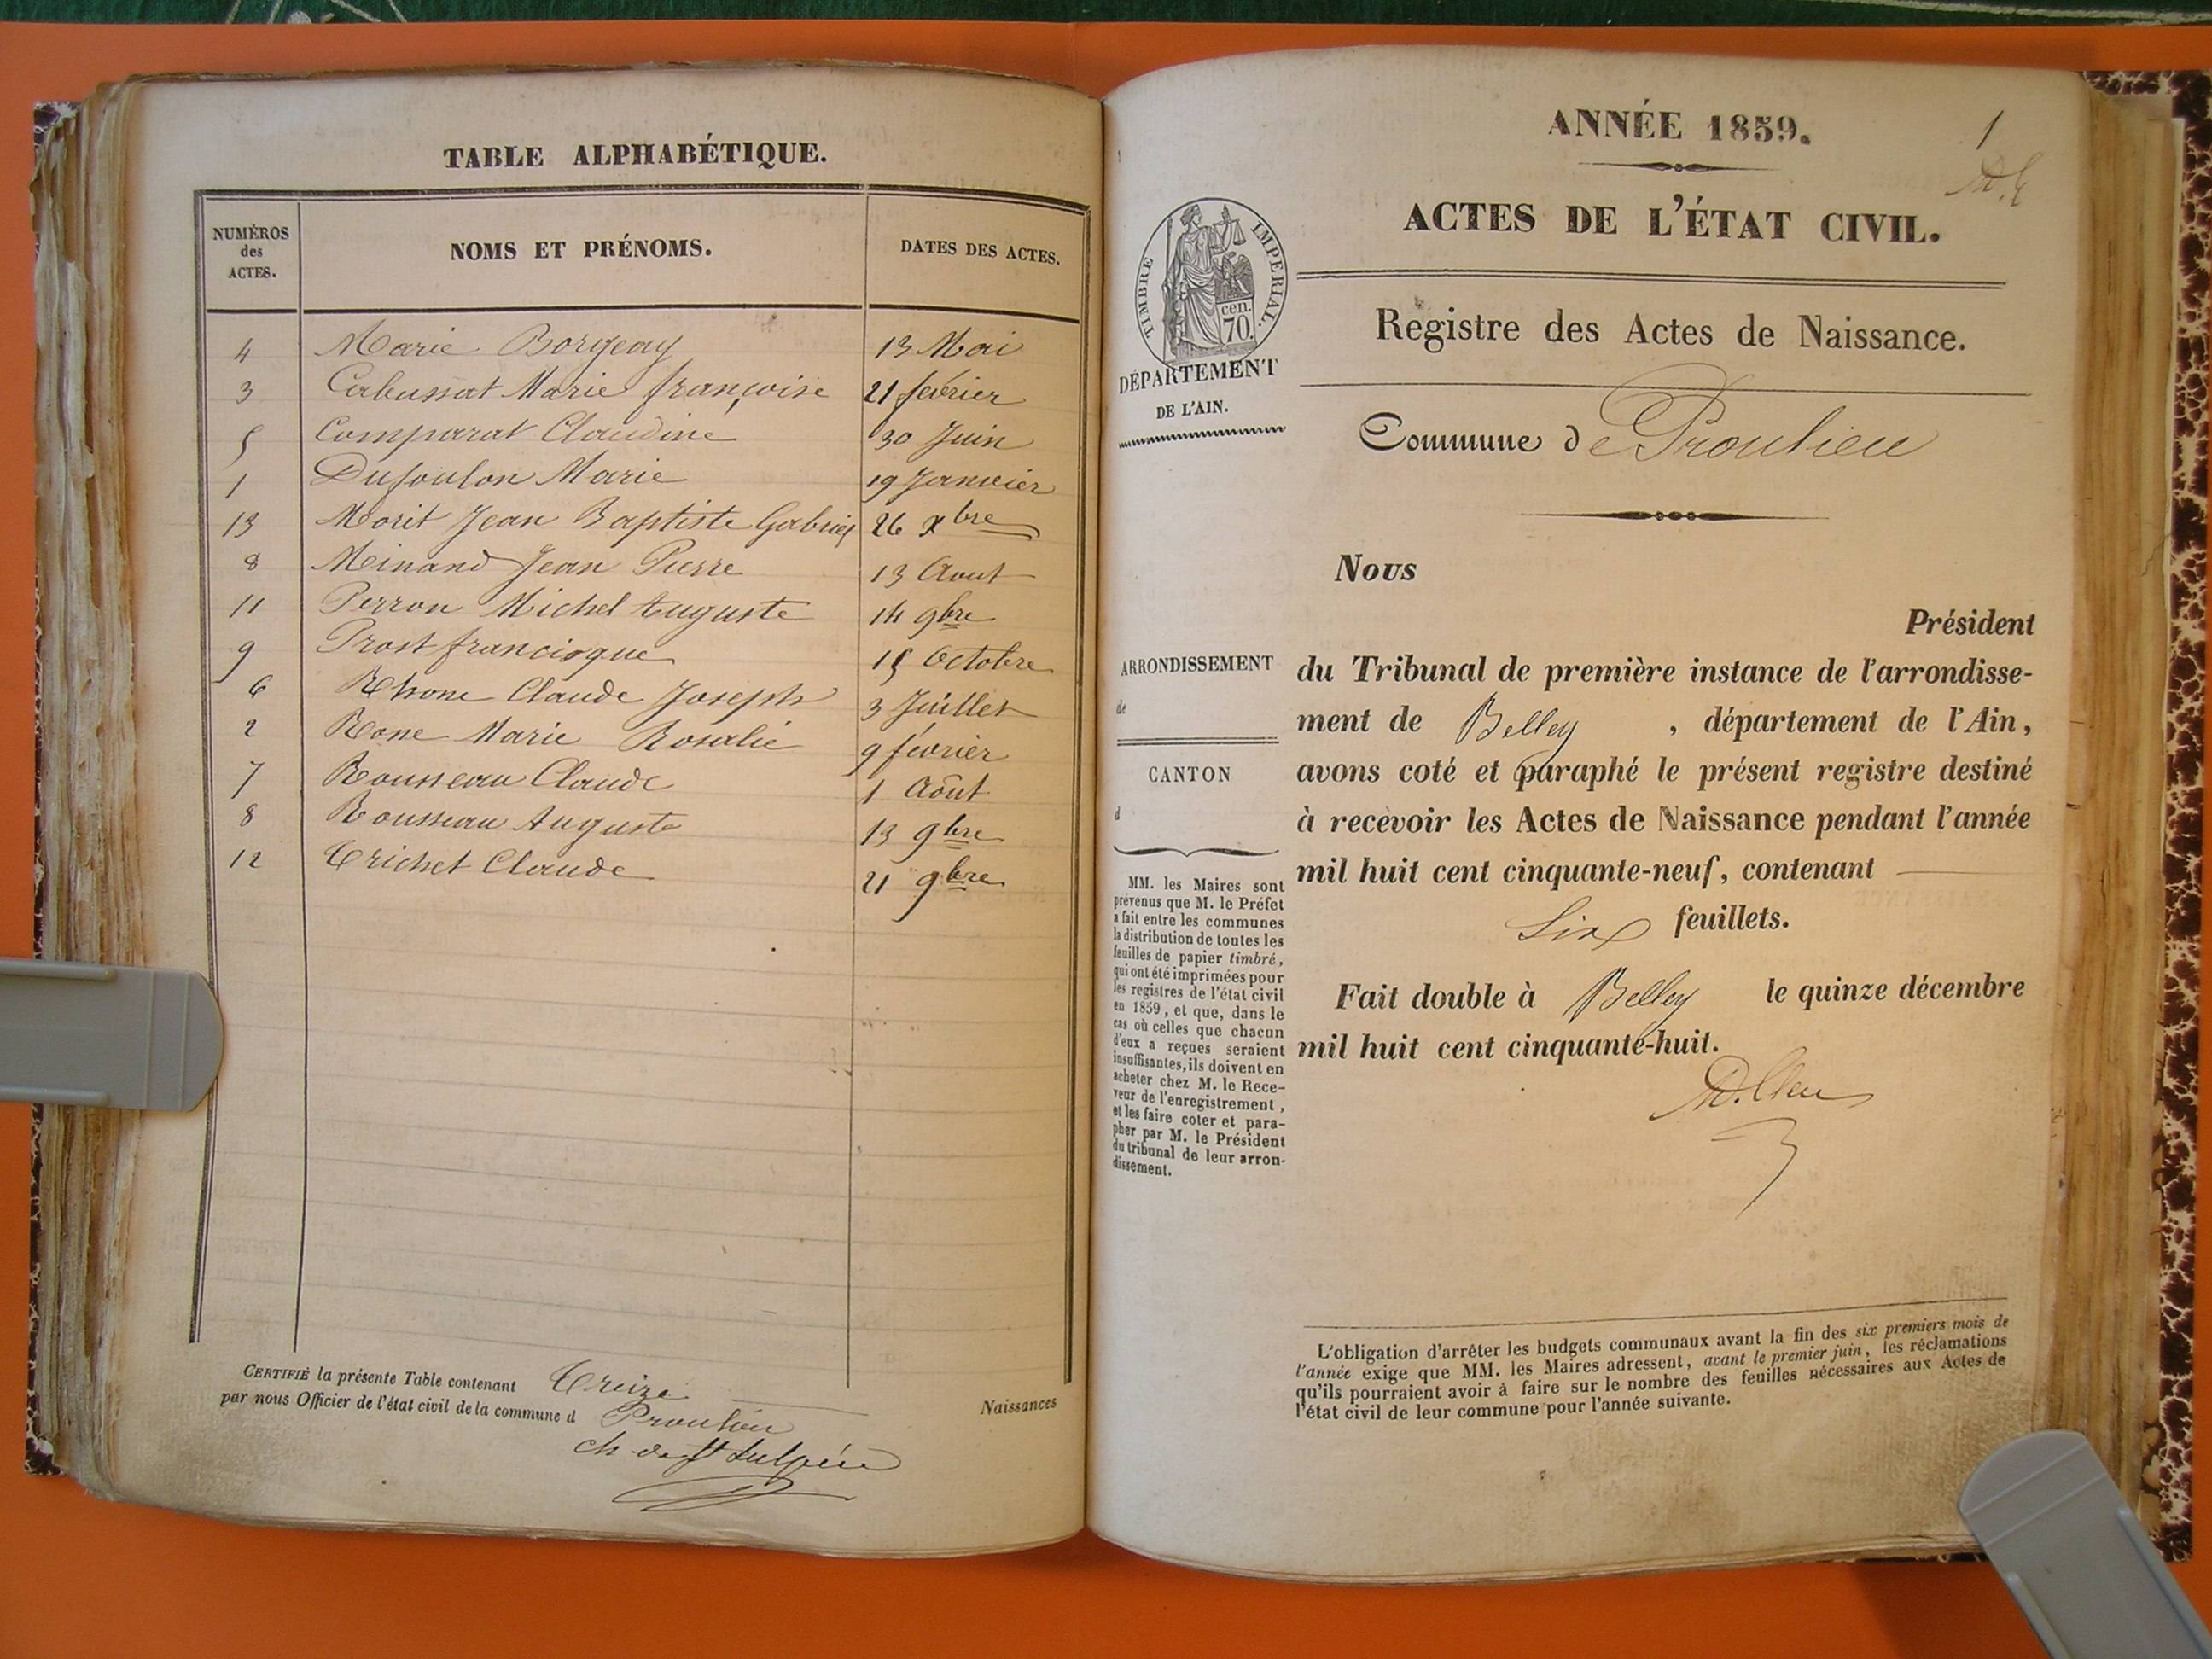 TABLE ALPHABÉTIQUE.
NUMÉROS
des
ACTES.
NOMS ET PRÉNOMS.
DATES DES ACTES.
4 Marie Borgeay 13 Mai
3 Cabussat Marie françoise 21 février
5 Comparat Claudine 30 Juin
1 Dufoulon Marie 19 Janvier
13 Morit Jean Baptiste Gabriel 26 xbre
8 Meinand Jean Pierre 13 Aout
11 Perron Michel Auguste 14 9bre
9 Prost francisque 15 Octobre
6 Rhone Claude Joseph 3 Juillet
2 Rone Marie Rosalie 9 février
7 Rousseau Claude 1 Août
8 Rousseau Auguste 13 9bre
12 Trichet Claude 21 9bre
CERTIFIÉ la présente Table contenant Treize Naissances
par nous Officier de l'état civil de la commune d Proulieu
ch de St Sulpice
ANNÉE 1859.
1
ACTES DE L'ÉTAT CIVIL.
TIMBRE IMPERIAL.
cen.
70.
DÉPARTEMENT
DE L'AIN.
Registre des Actes de Naissance.
Commune de Proulieu
Nous
Président
ARRONDISSEMENT
de
CANTON
d
du Tribunal de première instance de l'arrondisse-
ment de Belley , département de l'Ain,
avons coté et paraphé le présent registre destiné
à recevoir les Actes de Naissance pendant l'année
mil huit cent cinquante-neuf, contenant
Six feuillets.
Fait double à Belley le quinze décembre
mil huit cent cinquante-huit.
MM. les Maires sont
prévenus que M. le Préfet
a fait entre les communes
la distribution de toutes les
feuilles de papier timbré,
qui ont été imprimées pour
les registres de l'état civil
en 1859, et que, dans le
cas où celles que chacun
d'eux a reçues seraient
insuffisantes, ils doivent en
acheter chez M. le Rece-
veur de l'enregistrement,
et les faire coter et para-
pher par M. le Président
du tribunal de leur arron-
dissement.
L'obligation d'arrêter les budgets communaux avant la fin des six premiers mois de
l'année exige que MM. les Maires adressent, avant le premier juin, les réclamations
qu'ils pourraient avoir à faire sur le nombre des feuilles nécessaires aux Actes de
l'état civil de leur commune pour l'année suivante.